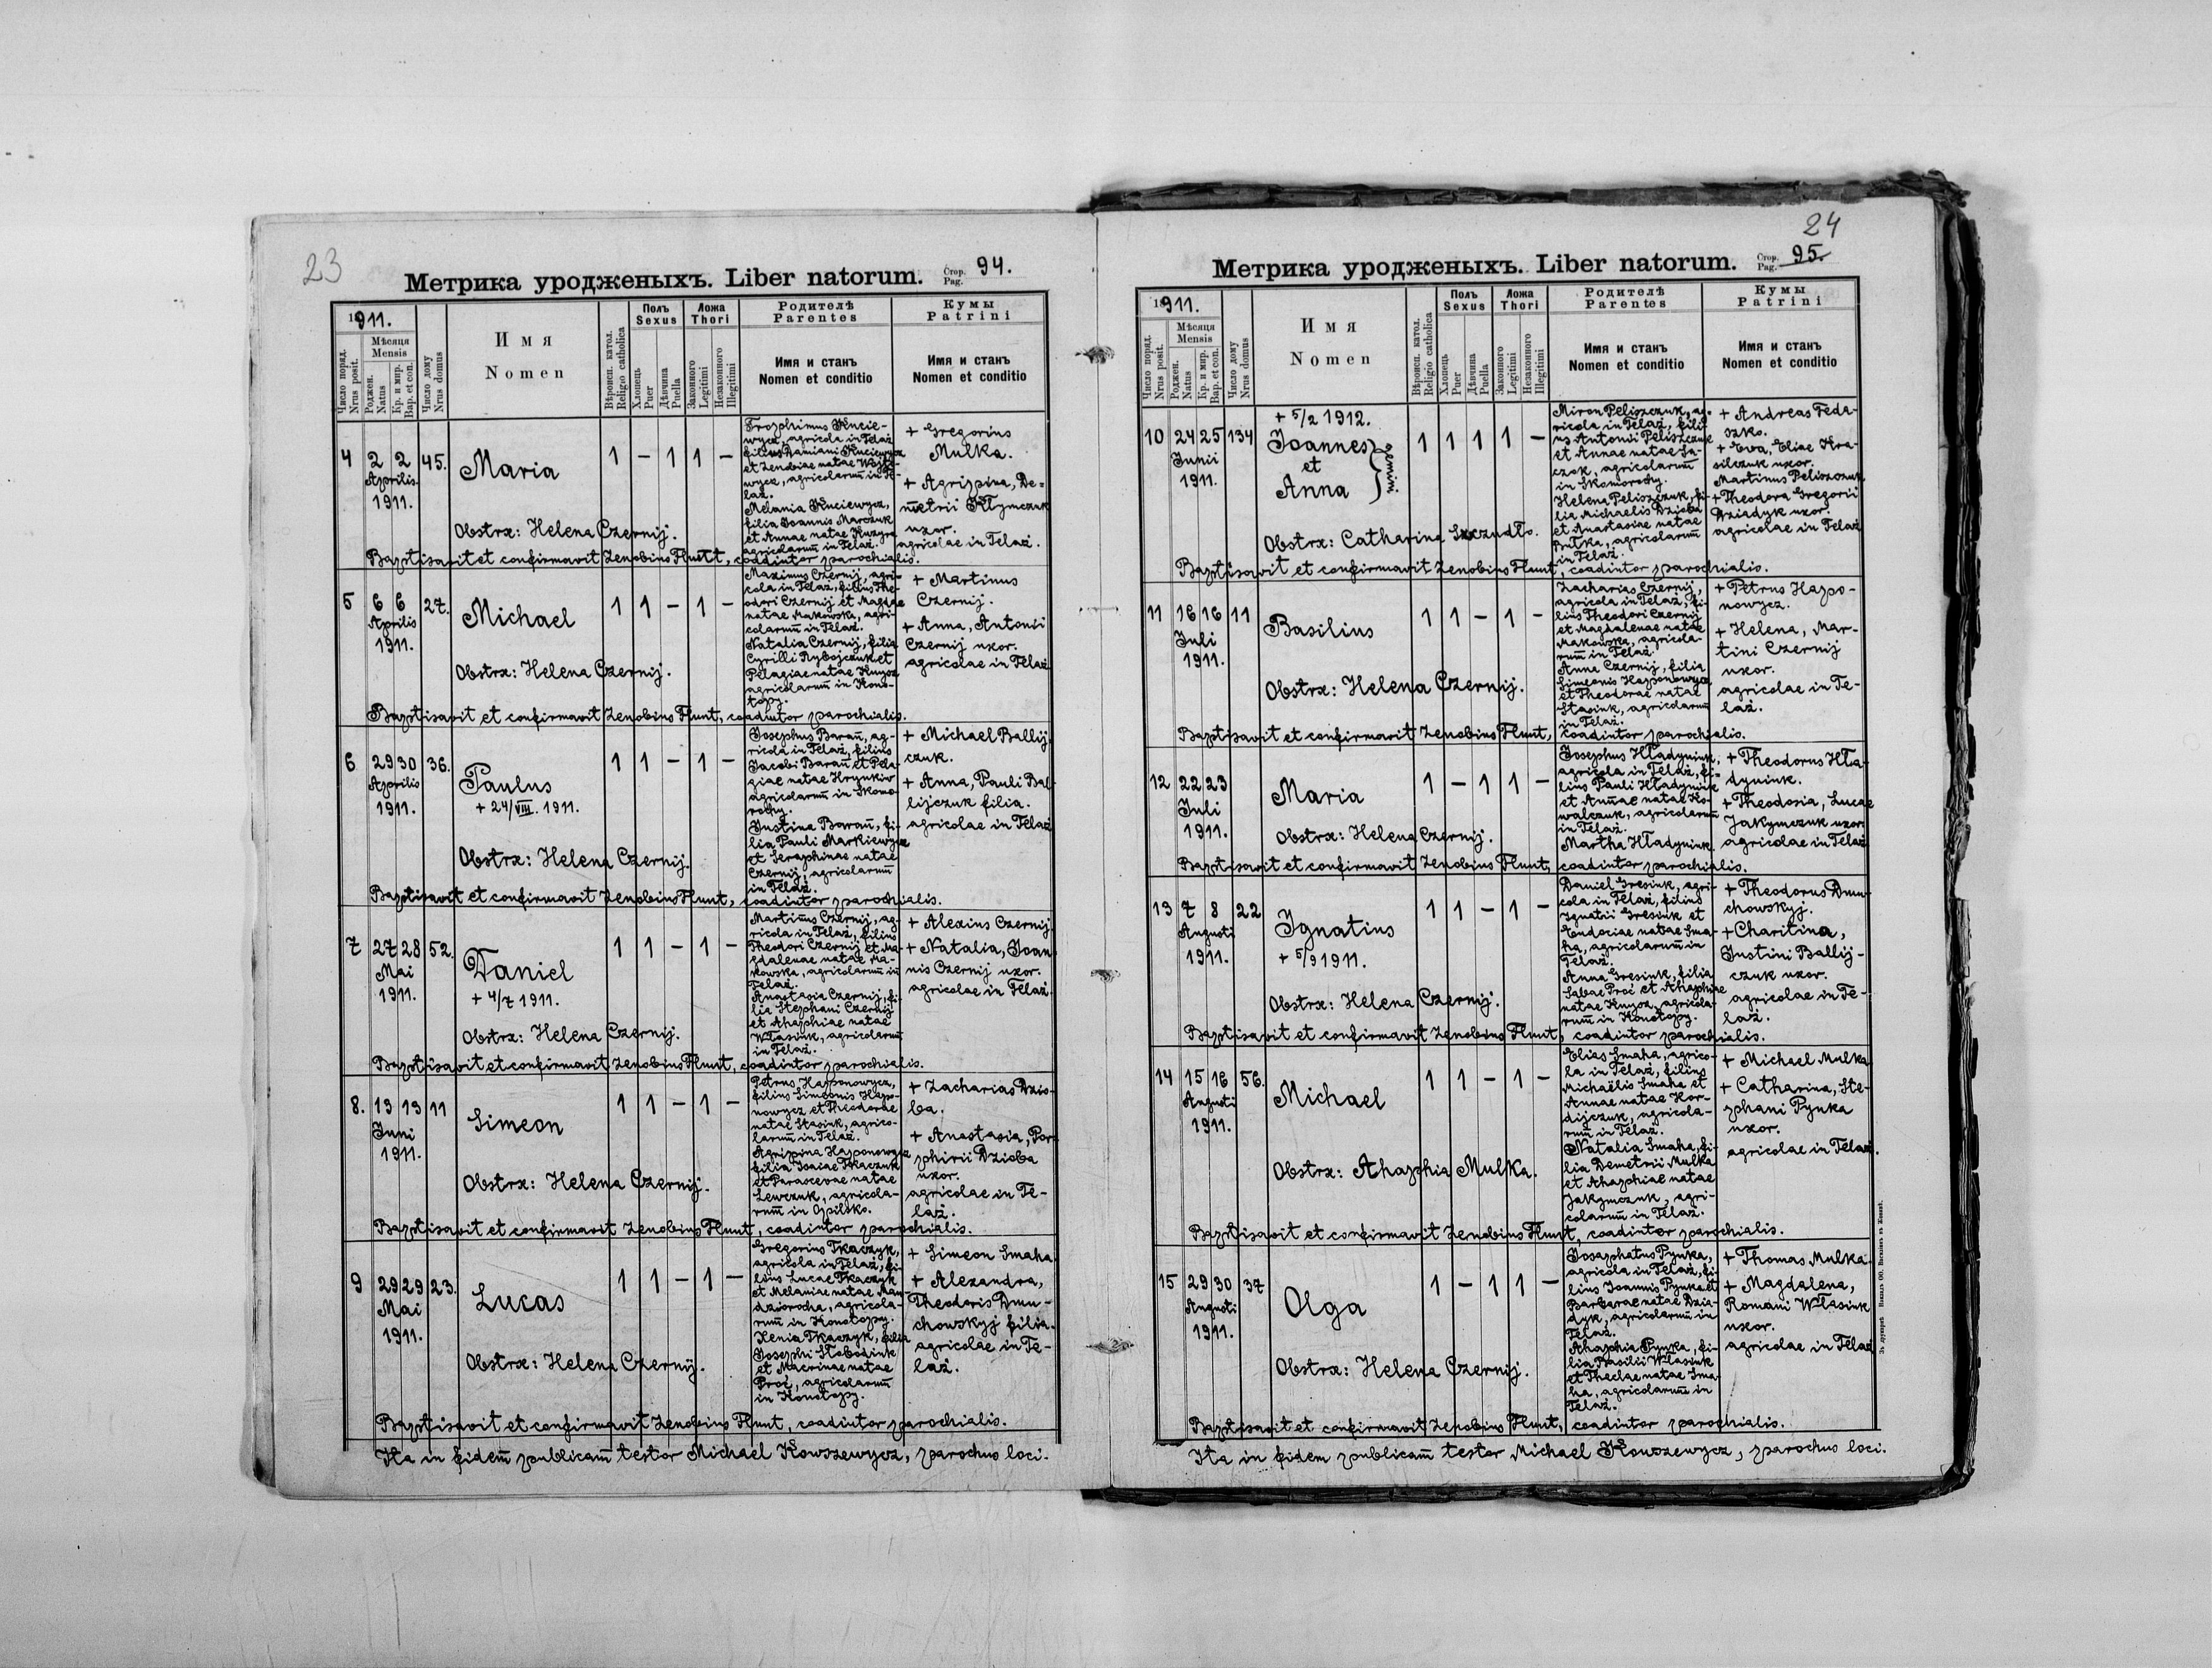 23
Метрика уродженыхъ. Liber natorum. Стор. Pag. 94.
1911.
Число поряд.
Nrus posit.
Мѣсяця
Mensis
Роджен.
Natus
Кр. и мир.
Bap. et con.
Число дому
Nrus domus
Имя
Nomen
Вѣроисп. катол.
Religio catholica
Полъ
Sexus
Хлопець
Puer
Дѣвчина
Puella
Ложа
Thori
Законного
Legitimi
Незаконного
Illegitimi
Родителѣ
Parentes
Имя и станъ
Nomen et conditio
Кумы
Patrini
Имя и станъ
Nomen et conditio
4 2 2 45. Maria 1 – 1 1 –
Aprilis
1911.
Obstrx: Helena Czernij.
Trophimus Kucie-
wycz, agricola in Telaż
filius Damiani Kuciewycz
et Zenobiae natae Wojto-
wycz, agricolarum̄ in Te-
laż.
Melania Kuciewycz,
filia Joannis Marczuk
et Annae natae
agricolarum̄ in Telaż.
+ Gregorius
Mulka.
+ Agripina, De-
metrii Kłymczuk
uxor.
agricolae in Telaż.
Baptisavit et confirmavit Zenobius Flunt, coadiutor parochialis.
5 6 6 27. Michael 1 1 – 1 –
Aprilis
1911.
Obstrx: Helena Czernij.
Maximus Czernij, agri-
cola in Telaż, filius The-
odori Czernij et Magdae
natae Makowska, agri-
colarum̄ in Telaż.
Natalia Czernij, filia
Cyrilli Rybojczuk et
Pelagiae natae Knysz
agricolarum̄ in Kono-
topy.
+ Martinus
Czernij.
+ Anna, Antonii
Czernij uxor.
agricolae in Telaż
Baptisavit et confirmavit Zenobius Flunt, coadiutor parochialis.
6 29 30 36. Paulus 1 1 – 1 –
Aprilis
1911.
+ 24/VIII. 1911.
Obstrx: Helena Czernij.
Josephus Barań, ag-
ricola in Telaż, filius
Jacobi Barań et Pela-
giae natae Hrynkiw
agricolarum̄ in Skomo-
rochy.
Justina Barań, fi-
lia Pauli Markiewycz
et Seraphinae natae
Czernij, agricolarum̄
in Telaż.
+ Michael Ballij-
czuk.
+ Anna, Pauli Bal-
lijczuk filia.
agricolae in Telaż
Baptisavit et confirmavit Zenobius Flunt, coadiutor parochialis.
7 27 28 52. Daniel 1 1 – 1 –
Mai
1911.
+ 4/7 1911.
Obstrx: Helena Czernij.
Martinus Czernij, ag-
ricola in Telaż, filius
Theodori Czernij et Ma-
gdalenae natae Ma-
kowska, agricolarum̄ in
Telaż.
Anastasia Czernij, fi-
lia Stephani Czernij
et Ahaphiae natae
Własiuk, agricolarum̄
in Telaż.
+ Alexius Czernij.
+ Natalia, Joan-
nis Czernij uxor.
agricolae in Telaż.
Baptisavit et confirmavit Zenobius Flunt, coadiutor parochialis.
8. 13 13 11 Simeon 1 1 – 1 –
Juni
1911.
Obstrx: Helena Czernij.
Petrus Haponowycz,
filius Simeonis Hapo-
nowycz et Theodorae
natae Stasiuk, agrico-
larum̄ in Telaż.
Agripina Haponowycz
filia Isaiae Tkaczuk
et Parascevae natae
Lewczuk, agricola-
rum̄ in Opilsko.
+ Zacharias Dzio-
ba.
+ Anastasia, Por-
phirii Dzioba
uxor.
agricolae in Te-
laż.
Baptisavit et confirmavit Zenobius Flunt, coadiutor parochialis.
9 29 29 23. Lucas 1 1 – 1 –
Mai
1911.
Obstrx: Helena Czernij.
Gregorius Tkaczyk,
agricola in Telaż, fi-
lius Lucae Tkaczyk
et Melaniae natae Man-
dziorocha, agricola-
rum̄ in Konotopy.
Xenia Tkaczyk, filia
Josephi Słobodiuk
et Macrinae natae
Proć, agricolarum̄
in Konotopy.
+ Simeon Smaha.
+ Alexandra,
Theodoris Dmu-
chowskyj filia.
agricolae in Te-
laż.
Baptisavit et confirmavit Zenobius Flunt, coadiutor parochialis.
Ita in fidem̄ publicam̄ testor Michael Kowszewycz, parochus loci.
24
Метрика уродженыхъ. Liber natorum. Стор. Pag. 95.
1911.
Число поряд.
Nrus posit.
Мѣсяця
Mensis
Роджен.
Natus
Кр. и мир.
Bap. et con.
Число дому
Nrus domus
Имя
Nomen
Вѣроисп. катол.
Religio catholica
Полъ
Sexus
Хлопець
Puer
Дѣвчина
Puella
Ложа
Thori
Законного
Legitimi
Незаконного
Illegitimi
Родителѣ
Parentes
Имя и станъ
Nomen et conditio
Кумы
Patrini
Имя и станъ
Nomen et conditio
+ 5/2 1912.
10 24 25 134 Joannes et Anna gemini 1 1 1 1 –
Junii
1911.
Obstrx: Catharina
Miron Peliszczuk, ag-
ricola in Telaż, fili-
us Antonii Peliszczuk
et Annae natae Sa-
czok, agricolarum̄
in Skomorochy.
Helena Peliszczuk, fi-
lia Michaelis Dzioba
et Anastasiae natae
Hutka, agricolarum̄
in Telaż.
+ Andreas Feda-
szko.
+ Eva, Eliae Hra-
silczuk uxor.
Martinus Peliszczuk
+ Theodora Gregorii
Dziadyk uxor.
agricolae in Telaż
Baptisavit et confirmavit Zenobius Flunt, coadiutor parochialis.
11 16 16 11 Basilius 1 1 – 1 –
Juli
1911.
Obstrx: Helena Czernij.
Zacharias Czernij,
agricola in Telaż, fi-
lius Theodori Czernij
et Magdalenae natae
Makowska, agricola-
rum̄ in Telaż.
Anna Czernij, filia
Simeonis Haponowycz
et Theodorae natae
Stasiuk, agricolarum̄
in Telaż.
+ Petrus Hapo-
nowycz.
+ Helena, Mar-
tini Czernij
uxor.
agricolae in Te-
laż.
Baptisavit et confirmavit Zenobius Flunt, coadiutor parochialis.
12 22 23 Maria 1 – 1 1 –
Juli
1911.
Obstrx: Helena Czernij.
Josephus Hładyniuk,
agricola in Telaż, fi-
lius Pauli Hładyniuk
et Annae natae Ko-
walczuk, agricolarum̄
in Telaż.
Martha Hładyniuk
+ Theodorus Hła-
dyniuk.
+ Theodosia, Lucae
Jakymczuk uxor.
agricolae in Telaż
Baptisavit et confirmavit Zenobius Flunt, coadiutor parochialis.
13 7 8 22 Ignatius 1 1 – 1 –
Augusti
1911.
+ 5/9 1911.
Obstrx: Helena Czernij.
Daniel Gresiuk, agri-
cola in Telaż, filius
Ignatii Gresiuk et
Eudociae natae Sma-
ha, agricolarum̄ in
Telaż.
Anna Gresiuk, filia
Sabae Proć et Ahaphiae
natae Knysz, agricola-
rum̄ in Konotopy.
+ Theodorus Dmu-
chowskyj.
+ Charitina,
Justini Ballij-
czuk uxor.
agricolae in Te-
laż.
Baptisavit et confirmavit Zenobius Flunt, coadiutor parochialis.
14 15 16 56. Michael 1 1 – 1 –
Augusti
1911.
Obstrx: Ahaphia Mulka.
Elias Smaha, agrico-
la in Telaż, filius
Michaëlis Smaha et
Annae natae Hor-
dijczuk, agricola-
rum̄ in Telaż.
Natalia Smaha, fi-
lia Demetrii Mulka
et Ahaphiae natae
Jakymczuk, agri-
colarum̄ in Telaż.
+ Michael Mulka
+ Catharina, Ste-
phani Pynka
uxor.
agricolae in Telaż.
Baptisavit et confirmavit Zenobius Flunt, coadiutor parochialis.
15 29 30 37 Olga 1 – 1 1 –
Augusti
1911.
Obstrx: Helena Czernij.
Josaphatus Pynka,
agricola in Telaż, fi-
lius Joannis Pynka et
Barbarae natae Dzia-
dyk, agricolarum̄ in
Telaż.
Ahaphia Pynka, fi-
lia Basilii Własiuk
et Theclae natae Sma-
ha, agricolarum̄ in
Telaż.
+ Thomas Mulka.
+ Magdalena,
Romani Własiuk
uxor.
agricolae in Telaż
Baptisavit et confirmavit Zenobius Flunt, coadiutor parochialis.
Ita in fidem publicam̄ testor Michael Kowszewycz, parochus loci.